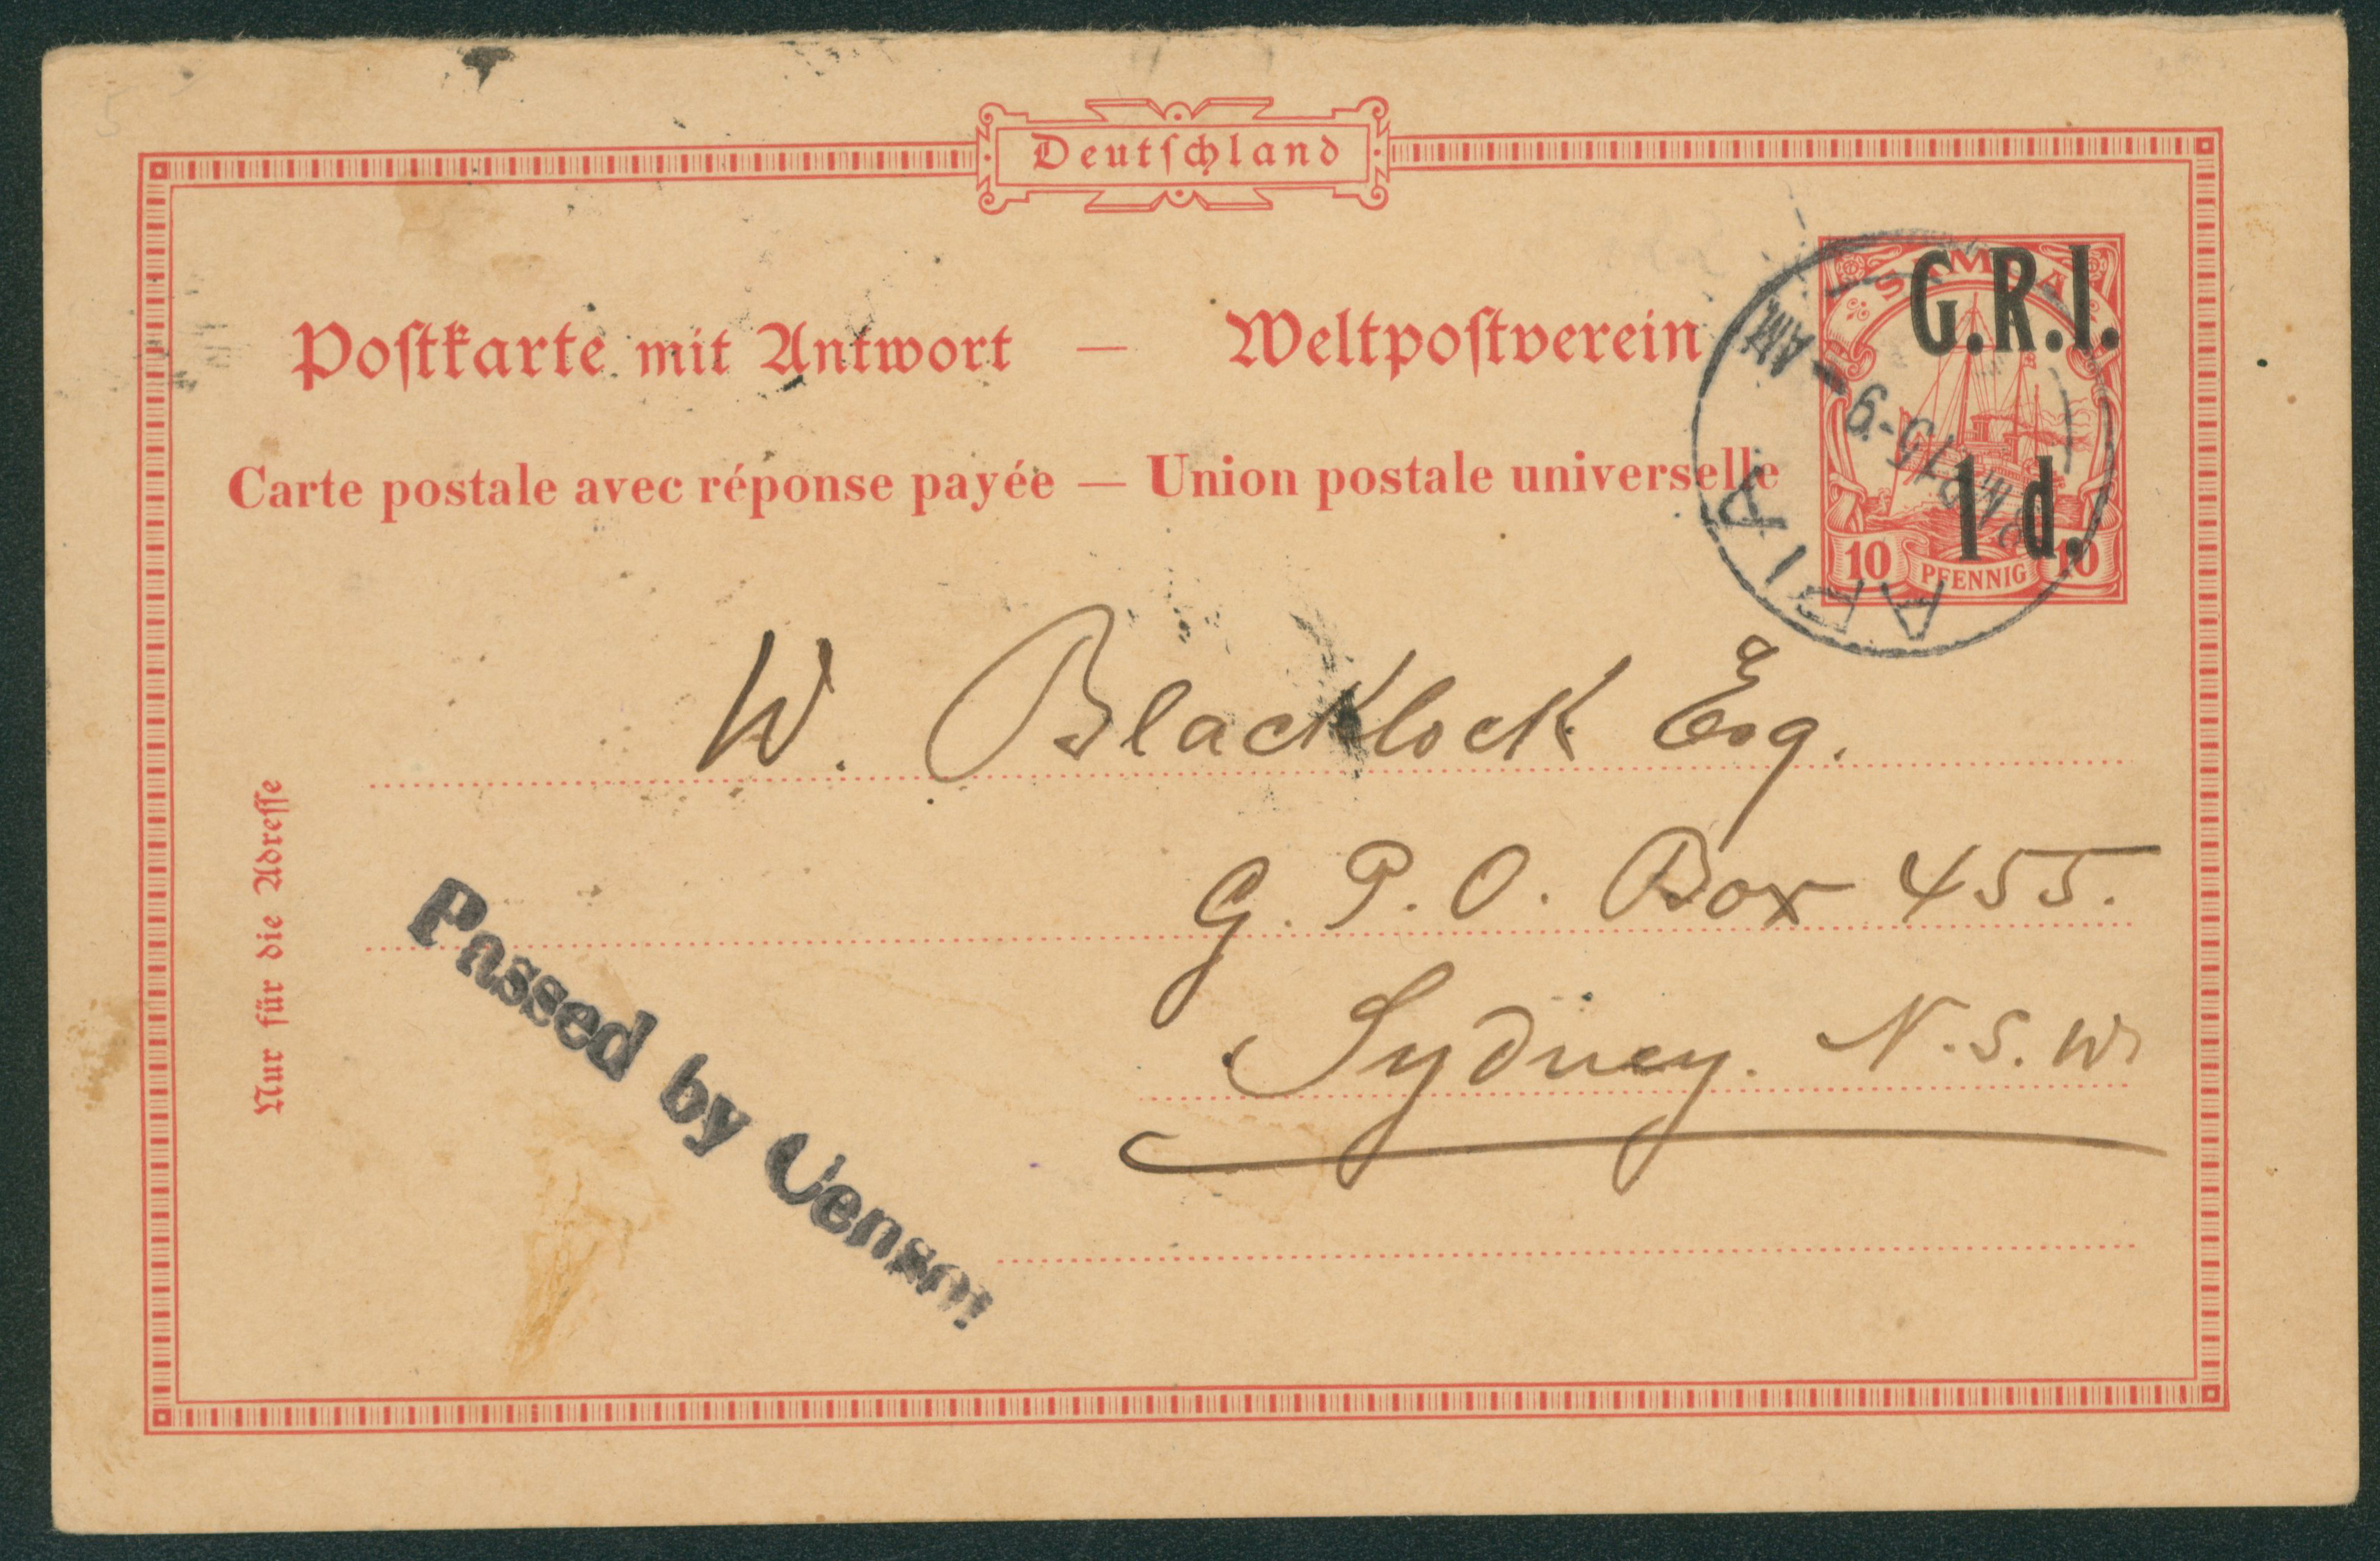 Deutſchland
Poſtkarte mit Antwort — Weltpoſtverein
Carte postale avec réponse payée — Union postale universelle
SAMOA
G.R.I.
1 d.
10 PFENNIG 10
APIA
15-9-AM
W. Blacklock Esq.
G. P. O. Box 455.
Sydney. N. S. W.
Nur für die Adreſſe
Passed by Censor